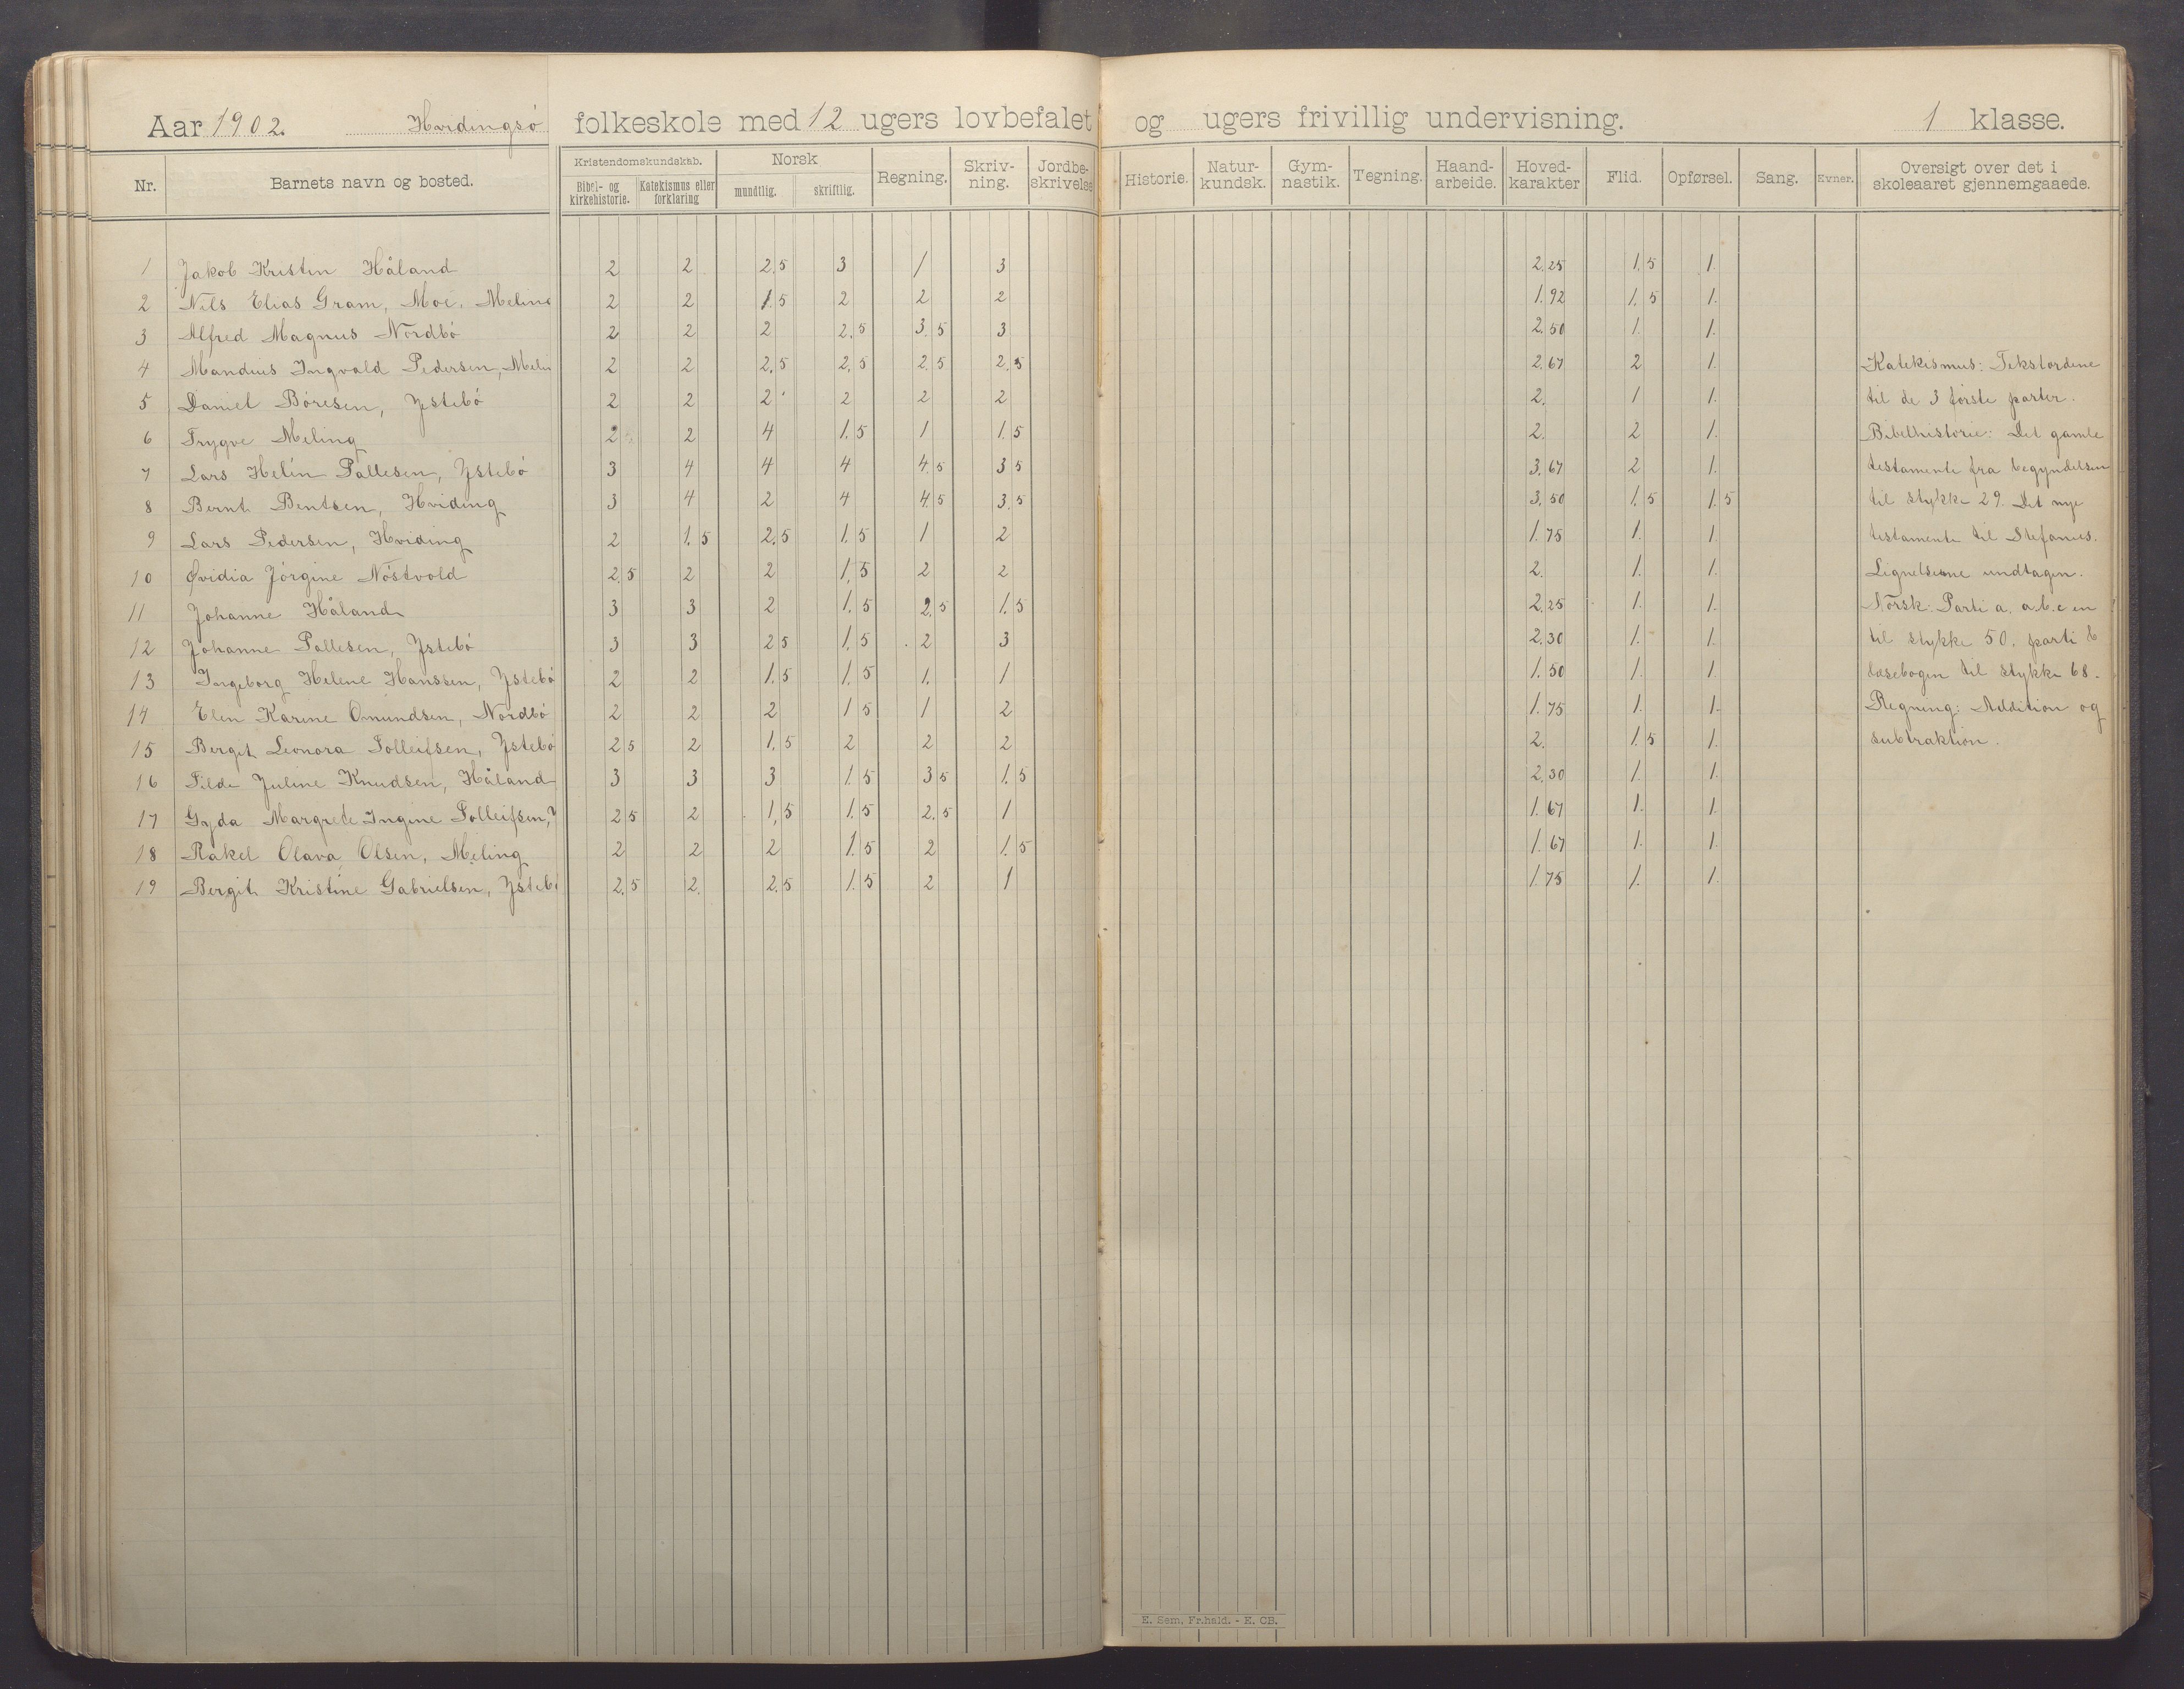 Aar 1902. Hvidingsö folkeskole med 12 ugers lovbefalet og ugers frivillig undervisning. 1 klasse.
Nr. Barnets navn og bosted. Kristendomskundskab. Bibel- og kirkehistorie. Katekismus eller forklaring Norsk mundtlig. skriftlig. Regning. Skriv-ning. Jordbe-skrivelse Historie. Natur-kundsk. Gym-nastik. Tegning. Haand-arbeide. Hoved-karakter Flid. Opførsel. Sang. Evner. Oversigt over det i skoleaaret gjennemgaaede.
1 Jakob Kristin Håland 2 2 2,5 3 1 3 2,25 1,5 1.
2 Nils Elias Gram, Moe, Meling 2 2 1.5 2 2 2 1.92 1,5 1.
3 Alfred Magnus Nordbö 2 2 2 2,5 3.5 3 2,50 1. 1.
4 Mandius Ingvald Pedersen, Melin 2 2 2,5 2,5 2,5 2,5 2,67 2 1. Katekismus: Tekstordene
5 Daniel Böresen, Ystebö 2 2 2 2 2 2 2. 1 1. til de 3 förste parter.
6 Trygve Meling 2 2 4 1.5 1 1.5 2. 2 1. Bibelhistorie: Det gamle
7 Lars Helin Pallesen, Ystebö 3 4 4 4 4,5 3 5 3,67 2 1. testamente fra begyndelsen
8 Bernt Bentsen, Hviding 3 4 2 4 4.5 3,5 3,50 1.5 1.5 til stykke 29. Det nye
9 Lars Pedersen, Hviding 2 1.5 2,5 1.5 1 2 1.75 1. 1. testamente til Stefanus.
10 Ovidia Jörgine Nöstvold 2,5 2 2 1,5 2 2 2. 1. 1. Lignelserne undtagen.
11 Johanne Håland 3 3 2 1.5 2,5 1.5 2,25 1. 1. Norsk: Parti a. a.b.c en
12 Johanne Pallesen, Ystebö 3 3 2 5 1.5 2 3 2,30 1. 1. til stykke 50. parti b
13 Ingeborg Helene Hanssen, Ystebö 2 2 1.5 1.5 1. 1 1.50 1. 1. læsebogen til stykke 68.
14 Elen Karine Omundsen, Nordbö 2 2 2 1 5 1 2 1.75 1. 1. Regning: Addition og
15 Bergit Leonora Tolleifsen, Ystebö 2 5 2 1.5 2 2 2 2. 1.5 1. subtraktion.
16 Tilda Juline Knudsen, Håland 3 3 3 1.5 3 5 1.5 2,30 1. 1.
17 Gyda Margrete Ingine Tolleifsen, Y 2 5 2 1,5 1.5 2.5 1 1.67 1. 1.
18 Rakel Olava Olsen, Meling 2 2 2 1.5 2 1.5 1.67 1. 1.
19 Bergit Kristine Gabrielsen, Ysteb 2,5 2. 2,5 1.5 2 1 1 75 1. 1.
E. Sem, Fr.hald. - E. CB.